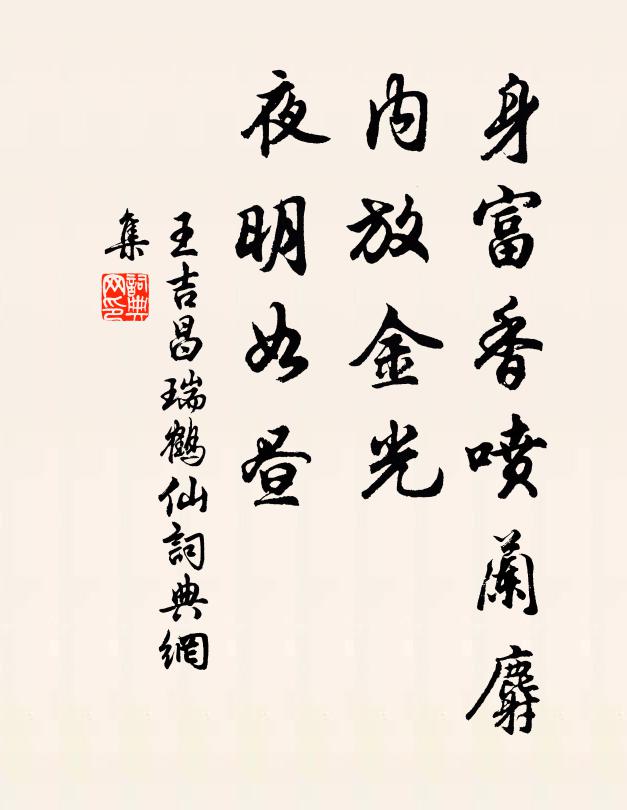 身富香噴蘭麝
内放金光
夜明如昼
王吉昌瑞鶴仙詞典網
集
詞典
网印